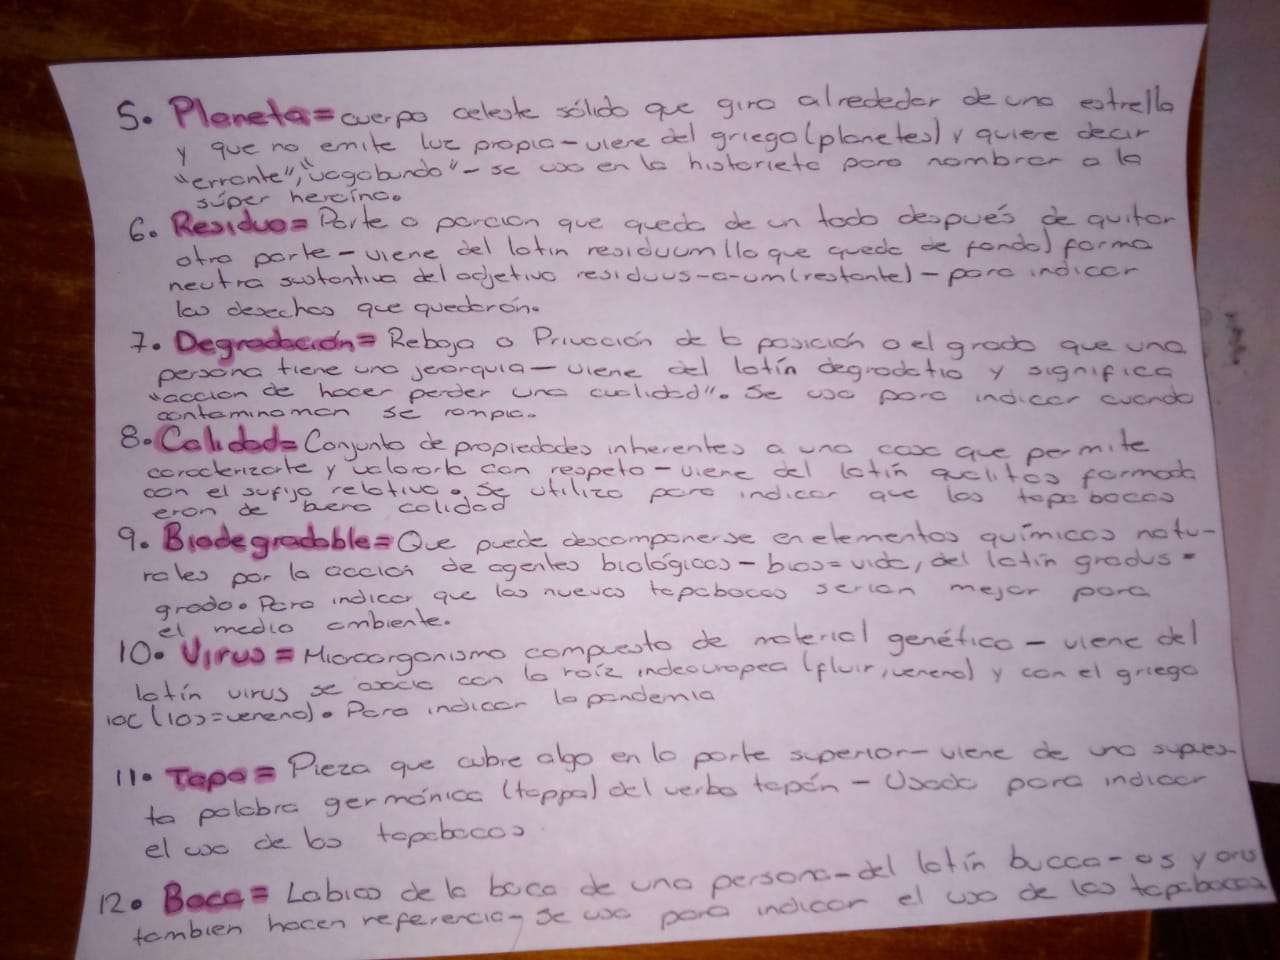 5. Planeta = cuerpo celeste sólido que gira alrededor de una estrella
y que no emite luz propia - viene del griego (planetes) y quiere decir
"errante", "vagabundo" - se usa en la historieta para nombrar a la
súper heroína.
6. Residuo = Parte o porcion que queda de un todo después de quitar
otra parte - viene del latin residuum (lo que queda de fondo) forma
neutra sustantiva del adjetivo residuus-a-um (restante) - para indicar
los desechos que quedarón.
7. Degradación = Rebaja o Privación de la posición o el grado que una
persona tiene una jerarquia - viene del latín degradatio y significa
"accion de hacer perder una cualidad". Se usa para indicar cuando
contaminaman se rompio.
8. Calidad = Conjunto de propiedades inherentes a una cosa que permite
caracterizarte y valorarla con respeto - viene del latín qualitas formada
con el sufijo relativo. Se utilizo para indicar que los tapabocas
eran de buena calidad
9. Biodegradable = Que puede descomponerse en elementos químicos natu-
rales por la acción de agentes biológicos - bios = vida, del latín gradus =
grado. Para indicar que los nuevos tapabocas serian mejor para
el medio ambiente.
10. Virus = Microorganismo compuesto de material genético - viene del
latín virus se asocia con la raíz indeouropea (fluir, veneno) y con el griego
ioc (ios = veneno). Para indicar la pandemia
11. Tapa = Pieza que cubre algo en la parte superior - viene de una supues-
ta palabra germánica (tappa) del verbo tapón - Usada para indicar
el uso de los tapabocas
12. Boca = Labios de la boca de una persona - del latín bucca - os y oris
tambien hacen referencia - se usa para indicar el uso de los tapabocas